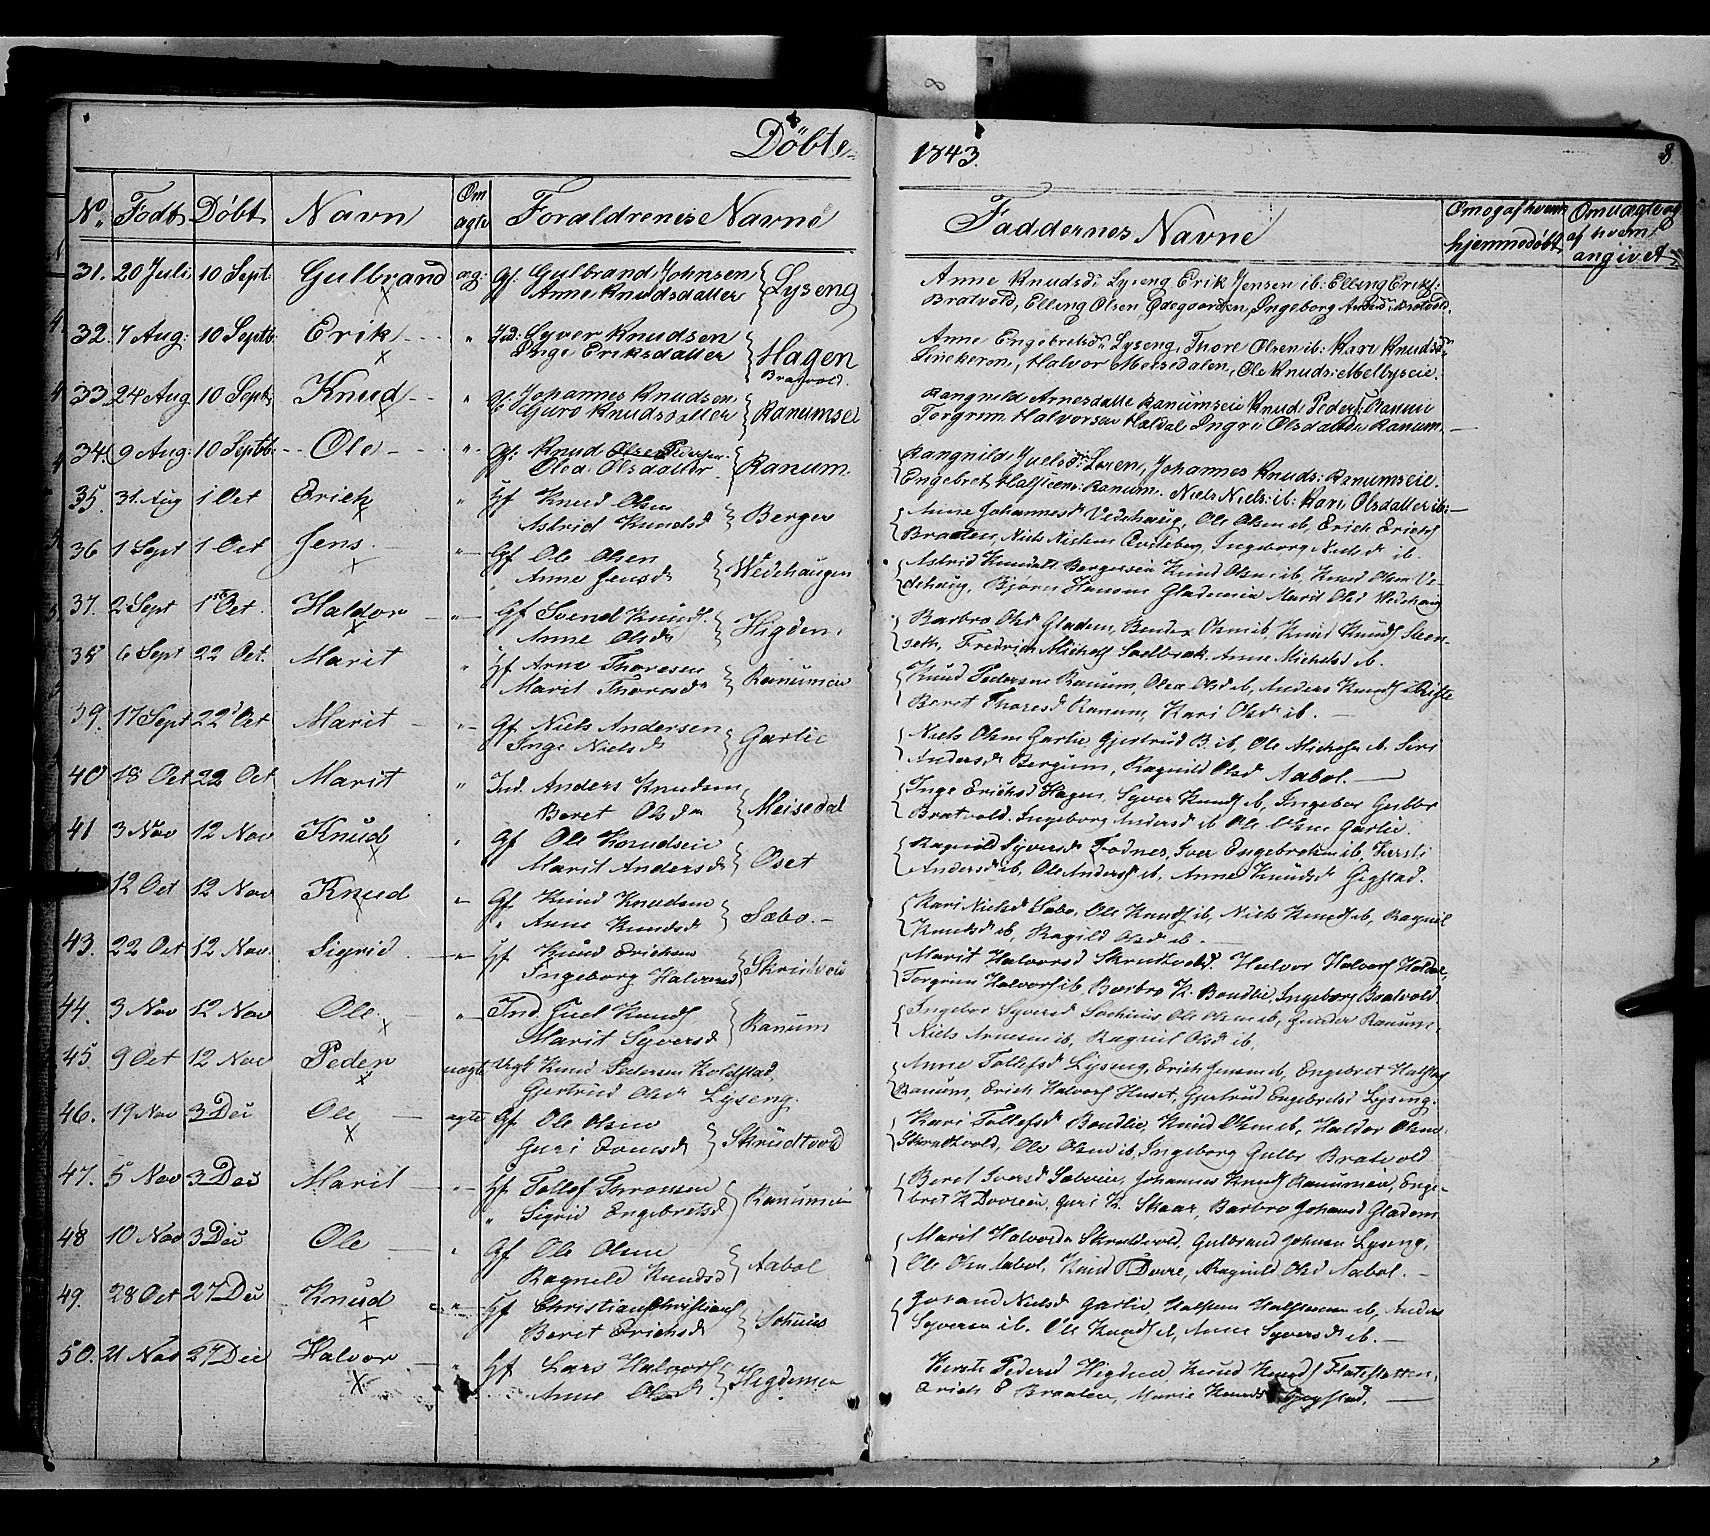 8
Døbte
1843.
8.
No. Født Døbt Navn Om ægte Forældrenes Navne Faddernes Navne Om og af hvem hjemmedøbt Om vægte og af hvem angivet
31. 20 Juli 10 Sept: Gulbrand æg: Gf. Gulbrand Johnsen Anne Knudsdatter Lyseng
Anne Knudsd: Lyseng Erik Jensen ib: Elling Eriks:
Bratvold, Elling Olsen Ødegaarden, Ingeborg Bratvold.
32. 7 Aug: 10 Septb: Erik " Ind: Syver Knudsen Inge Eriksdatter Hagen Bratvold.
Anne Engebretsd: Lyseng, Thore Olsen ib: Kari Knudsd:
Halvor Meisedalen, Ole Knuds: Melbyseie.
33 24 Aug 10 Septb Knud " Gf. Johannes Knudsen Guro Knudsdatter Ranumsei
Rangnild Arnesdatte Ranumseie Knud Peders: Ranum
Torgrim Halvorsen Haldal Ingri Olsdatter Ranum.
34. 9 Aug: 10 Septb: Ole " Gf: Knud Olsen Pedersen Olea Olsdatter Ranum.
Rangnild Juelsd: Loren, Johannes Knuds: Ranumseie.
Engebret Halsteens: Ranum. Niels Niels: ib: Kari Olsdatter ib:
35. 31. Aug 1 Oct Erich " Hf Knud Olsen Astrid Knudsd Bergers
Anne Johannesd Vedehaug, Ole Olsen ib, Erich Erichs
Braaten, Niels Nielsen Qvitsberg, Ingeborg Nielsd ib.
36 1 Sept 1 Oct Jens " Gf Ole Olsen Anne Jensd Wedehaugen
Astrid Knudsdt Bergerseie Knud Olsen ib, Knud Olsen Ve-
dehaug, Bjørn Hansen Glademeie Marit Olsd Vedehaug
37. 2 Sept 1 Oct. Haldor " Gf Svend Knuds. Anne Olsd Higden
Barbro Olsd Gladem, Bendix Olsen ib, Knud Knuds Steen-
seth, Fredrich Michels Soelbrak. Anne Michelsd ib.
38 6 Sept 22 Oct. Marit " Hf Arne Thoresen Marit Thoresd Ranumeie
Knud Pedersen Ranum, Olea Olsd ib, Anders Knuds
Beret Thoresd Ranum, Kari Olsd ib.
39. 17 Sept 22 Oct Marit " Gf Niels Andersen Inge Nielsd Garlie
Niels Olsen Garlie, Gjertrud B. ib, Ole Michels ib, Siri
Andersd Bergum, Ragnild Olsd Aabol.
40 18 Oct 22 Oct Marit " Ind. Anders Knudsen Beret Olsd Meisedal
Inge Erichsd Hagen, Syver Knuds ib, Ingebor Gulbr
Bratvold. Ingeborg Andersd ib Ole Olsen Garlie.
41 3 Nov 12 Nov Knud " Gf Ole Knudsen Marit Andersd Oset
Ragnild Syversd Fodnes, Iver Engebretsen ib, Kjersti
Andersd ib, Ole Anders ib, Anne Knudsd Gigstad.
12 Oct 12 Nov Knud " Gf Knud Knudsen Anne Knudsd Sæbo.
Kari Nielsd Sæbo, Ole Knuds ib, Niels Knuds ib, Ragnil
Knudsd ib, Ragild Olsd ib.
43. 22 Oct 12 Nov. Sigrid " Hf Knud Erichsen Ingeborg Halvorsd Skrudvold
Marit Halvorsd Skrudtvold. Halvor Halvors Haldal,
Torgrim Halvors ib, Barbro K. Bondlie, Ingeborg Bratvold
44. 3 Nov 12 Nov Ole " Ind. Juel Knuds Marit Syversd Ranum
Ingebor Syversd Sochius Ole Olsen ib, Gunder Ranum
Niels Arnesen ib, Ragnil Olsd ib.
45. 9 Oct 12 Nov Peder uægt Ungk Knud Pedersen Koldstad, Gjertrud Olsd Lyseng.
Anne Tollefsd Lyseng, Erich Jensen ib, Engebret Halsten
Ranum, Erich Halvors Huset, Gjertrud Engebretsd Lyseng.
46. 19 Nov 3 Dec Ole ægte Gf. Ole Olsen Guri Tomsd Skrudtvold
Kari Tollefsd Bondlie, Knud Olsen ib, Haldor Olsen
Skrudtvold, Ole Olsen ib, Ingeborg Gulbr Bratvold
47. 5 Nov 3 Dec Marit " Hf Tollef Thronsen Sigrid Engebretsd Ranumeie
Beret Iversd Sæbeie, Johannes Knuds Ranumeie, Enge-
bret K Dovreeie, Guri K. Skaar, Barbro Johansd Gladem
48 10 Nov 3 Dec Ole " Gf Ole Olsen Ragnild Knudsd Aabol
Marit Halvorsd Skrudtvold, Gulbrand Johnsen Lyseng,
Ole Olsen Aabol, Knud Dovre, Ragnild Olsd Aabol.
49. 28 Oct 27 Dec Knud " Hf Christian Christians Berit Erichsd Sohuus
Joran Nielsd Garlie, Halsten Halstensen ib, Anders
Syversen ib. Ole Knuds ib, Anne Syversd ib.
50. 21 Nov 27 Dec Halvor " Hf Lars Halvors Anne Olsd. Higdemeie
Kerste Pedersd Higden Knud Knuds Flatstatten,
Erich E Braaten, Marie Knudsd Gigstad.